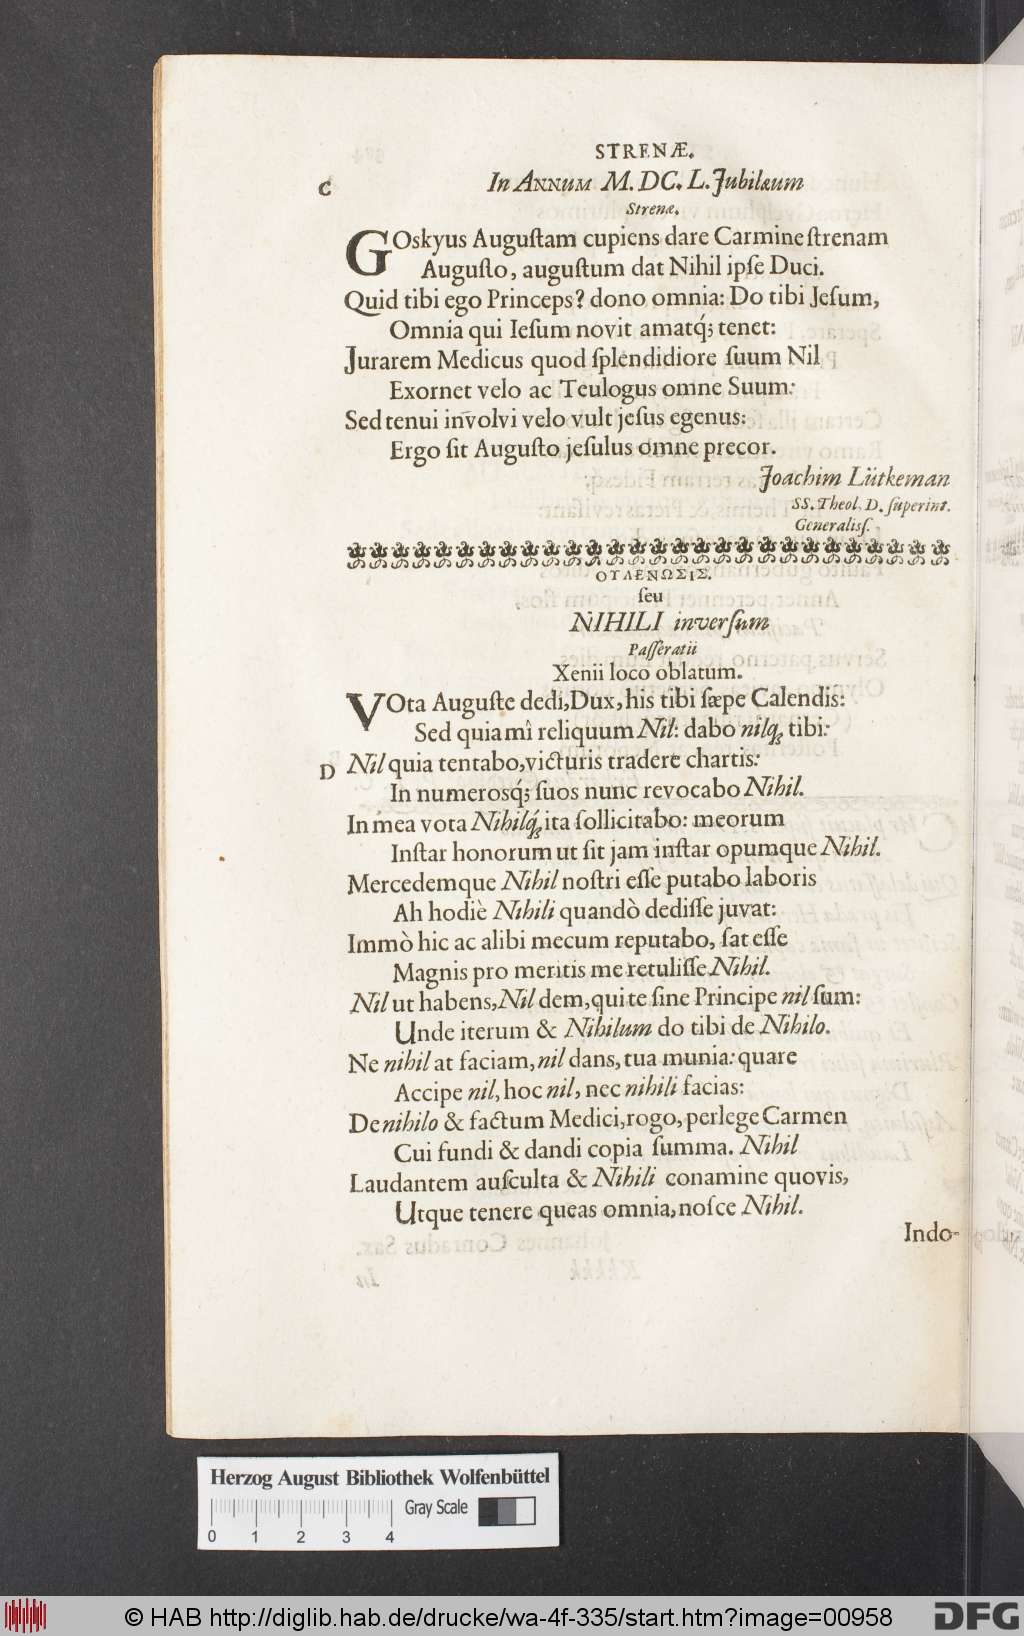 STRENÆ.
C
In ANNUM M. DC. L. Jubilæum
Strenæ.
GOskyus Auguſtam cupiens dare Carmine ſtrenam
Auguſto, auguſtum dat Nihil ipſe Duci.
Quid tibi ego Princeps? dono omnia: Do tibi Jeſum,
Omnia qui Ieſum novit amatq́; tenet:
Jurarem Medicus quod ſplendidiore ſuum Nil
Exornet velo ac Teulogus omne Suum:
Sed tenui involvi velo vult jeſus egenus:
Ergo ſit Auguſto jeſulus omne precor.
Joachim Lütkeman
SS. Theol. D. ſuperint.
Generaliſſ.
ΟΥΔΕΝΩΣΙΣ.
ſeu
NIHILI inverſum
Paſſeratii
Xenii loco oblatum.
VOta Auguſte dedi, Dux, his tibi ſæpe Calendis:
Sed quia mî reliquum Nil: dabo nilq; tibi:
D
Nil quia tentabo, victuris tradere chartis:
In numerosq́; ſuos nunc revocabo Nihil.
In mea vota Nihilq́; ita ſollicitabo: meorum
Inſtar honorum ut ſit jam inſtar opumque Nihil.
Mercedemque Nihil noſtri eſſe putabo laboris
Ah hodiè Nihili quandò dediſſe juvat:
Immò hic ac alibi mecum reputabo, ſat eſſe
Magnis pro meritis me retuliſſe Nihil.
Nil ut habens, Nil dem, qui te ſine Principe nil ſum:
Unde iterum & Nihilum do tibi de Nihilo.
Ne nihil at faciam, nil dans, tua munia: quare
Accipe nil, hoc nil, nec nihili facias:
De nihilo & factum Medici, rogo, perlege Carmen
Cui fundi & dandi copia ſumma. Nihil
Laudantem auſculta & Nihili conamine quovis,
Utque tenere queas omnia, noſce Nihil.
Indo-
Herzog August Bibliothek Wolfenbüttel
Gray Scale
0 1 2 3 4
© HAB http://diglib.hab.de/drucke/wa-4f-335/start.htm?image=00958
DFG